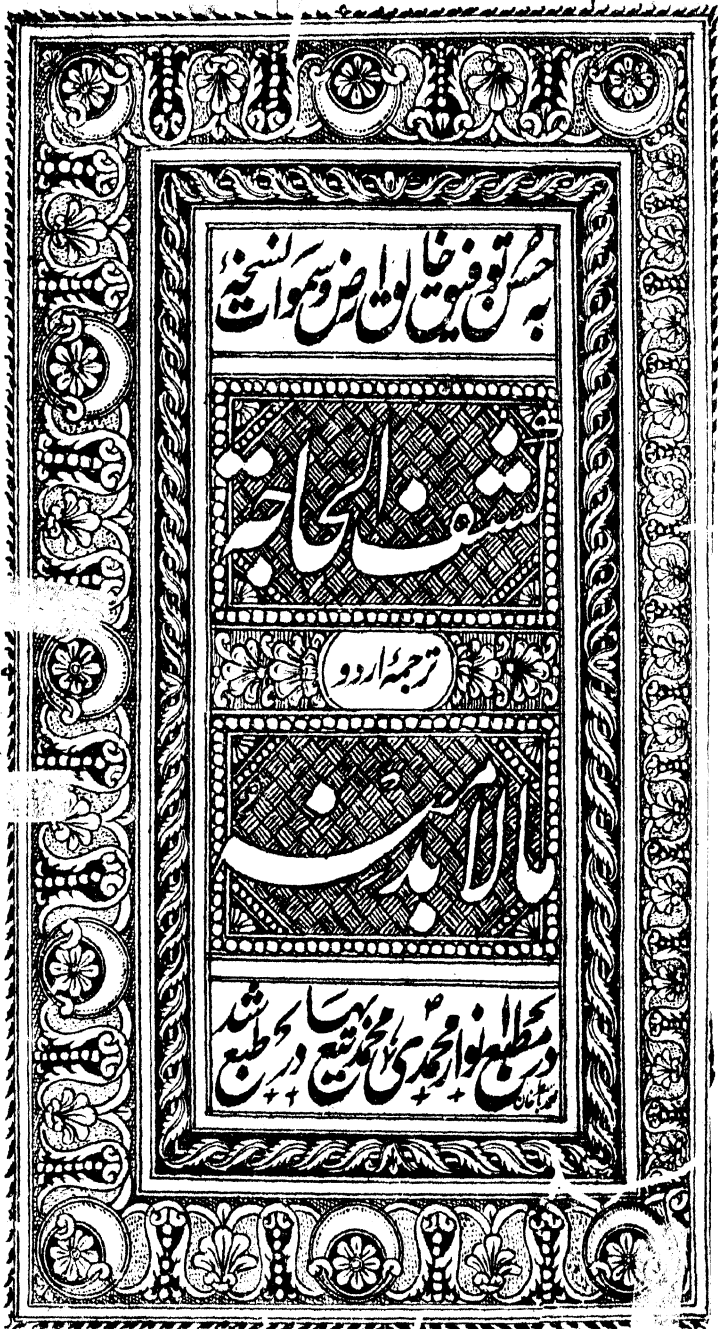 به حسن توفیق خالق ارض و سموات نسخهٔ
کشف الحاجة
ترجمهٔ اردو
مالابد منه
در مطبع انوار محمدی محمد تیغ بہادر طبع شد